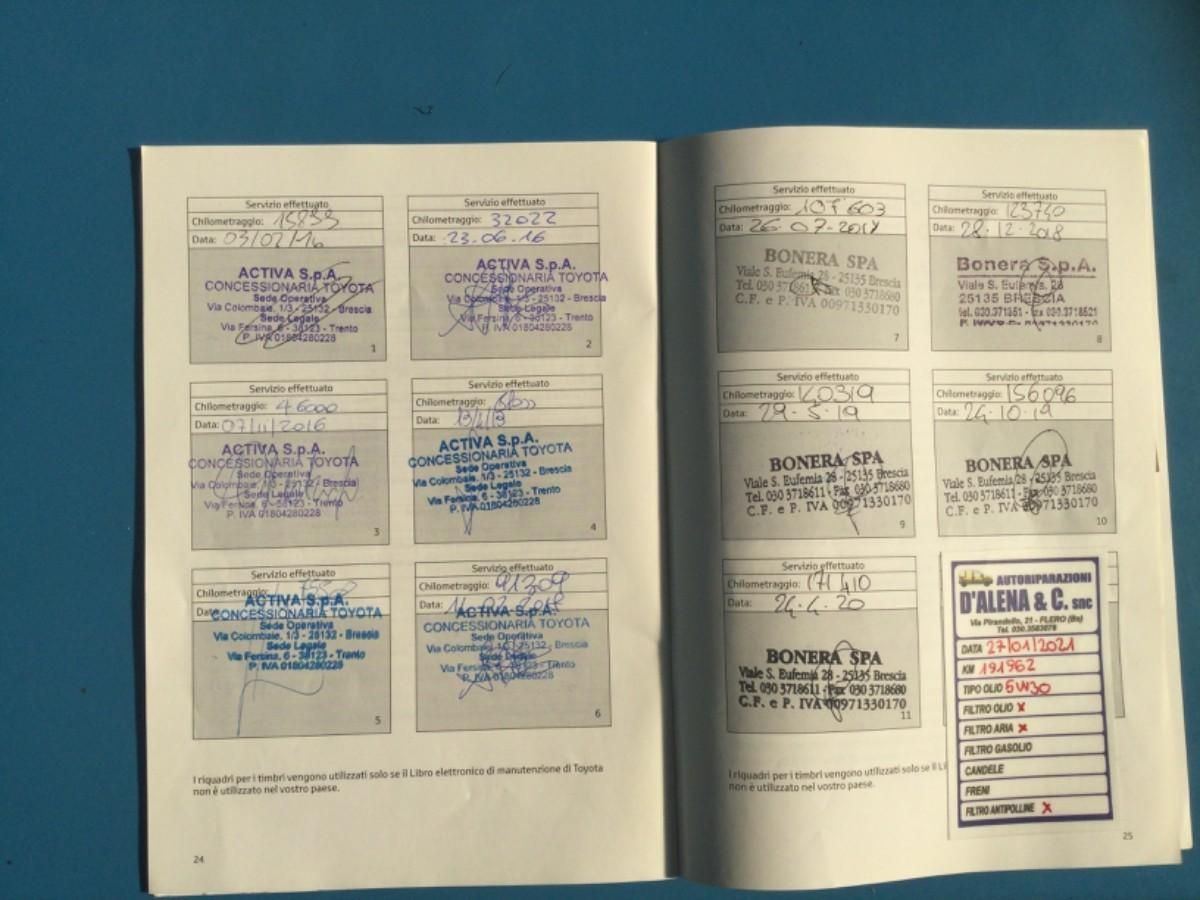 Servizio effettuato
Chilometraggio: 15833
Data: 03/02/16
ACTIVA S.p.A.
CONCESSIONARIA TOYOTA
Sede Operativa
Via Colombaie, 1/3 - 25132 - Brescia
Sede Legale
Via Fersina, 6 - 38123 - Trento
P. IVA 01804280228
1
Servizio effettuato
Chilometraggio: 32022
Data: 23.06.16
ACTIVA S.p.A.
CONCESSIONARIA TOYOTA
Sede Operativa
Via Colombaie, 1/3 - 25132 - Brescia
Sede Legale
Via Fersina, 6 - 38123 - Trento
P. IVA 01804280228
2
Servizio effettuato
Chilometraggio: 46000
Data: 07/11/2016
ACTIVA S.p.A.
CONCESSIONARIA TOYOTA
Sede Operativa
Via Colombaie, 1/3 - 25132 - Brescia
Sede Legale
Via Fersina, 6 - 38123 - Trento
P. IVA 01804280228
3
Servizio effettuato
Chilometraggio:
Data:
ACTIVA S.p.A.
CONCESSIONARIA TOYOTA
Sede Operativa
Via Colombaie, 1/3 - 25132 - Brescia
Sede Legale
Via Fersina, 6 - 38123 - Trento
P. IVA 01804280228
4
Servizio effettuato
Chilometraggio:
Data
ACTIVA S.p.A.
CONCESSIONARIA TOYOTA
Sede Operativa
Via Colombaie, 1/3 - 25132 - Brescia
Sede Legale
Via Fersina, 6 - 38123 - Trento
P. IVA 01804280228
5
Servizio effettuato
Chilometraggio: 91309
Data:
ACTIVA S.p.A.
CONCESSIONARIA TOYOTA
Sede Operativa
Via Colombaie, 1/3 - 25132 - Brescia
Sede Legale
Via Fersina, 6 - 38123 - Trento
P. IVA 01804280228
6
I riquadri per i timbri vengono utilizzati solo se il Libro elettronico di manutenzione di Toyota
non è utilizzato nel vostro paese.
24
Servizio effettuato
Chilometraggio: 107603
Data: 26.07-2018
BONERA SPA
Viale S. Eufemia 28 - 25135 Brescia
Tel. 030 3718611 - Fax 030 3718680
C.F. e P. IVA 00971330170
7
Servizio effettuato
Chilometraggio: 123740
Data: 28.12.2018
Bonera S.p.A.
Viale S. Eufemia, 28
25135 BRESCIA
tel. 030.371851 - fax 030.3718521
8
Servizio effettuato
Chilometraggio: 140319
Data: 29-5-19
BONERA SPA
Viale S. Eufemia 28 - 25135 Brescia
Tel. 030 3718611 - Fax 030 3718680
C.F. e P. IVA 00971330170
9
Servizio effettuato
Chilometraggio: 156096
Data: 24.10.19
BONERA SPA
Viale S. Eufemia 28 - 25135 Brescia
Tel. 030 3718611 - Fax 030 3718680
C.F. e P. IVA 00971330170
10
Servizio effettuato
Chilometraggio: 171410
Data: 24.4.20
BONERA SPA
Viale S. Eufemia 28 - 25135 Brescia
Tel. 030 3718611 - Fax 030 3718680
C.F. e P. IVA 00971330170
11
AUTORIPARAZIONI
D'ALENA & C. snc
Via Pirandello, 21 - FLERO (Bs)
Tel. 030.3583078
DATA 27/01/2021
KM 191962
TIPO OLIO 5W30
FILTRO OLIO X
FILTRO ARIA X
FILTRO GASOLIO
CANDELE
FRENI
FILTRO ANTIPOLLINE X
I riquadri per i timbri vengono utilizzati solo se il Li
non è utilizzato nel vostro paese.
25